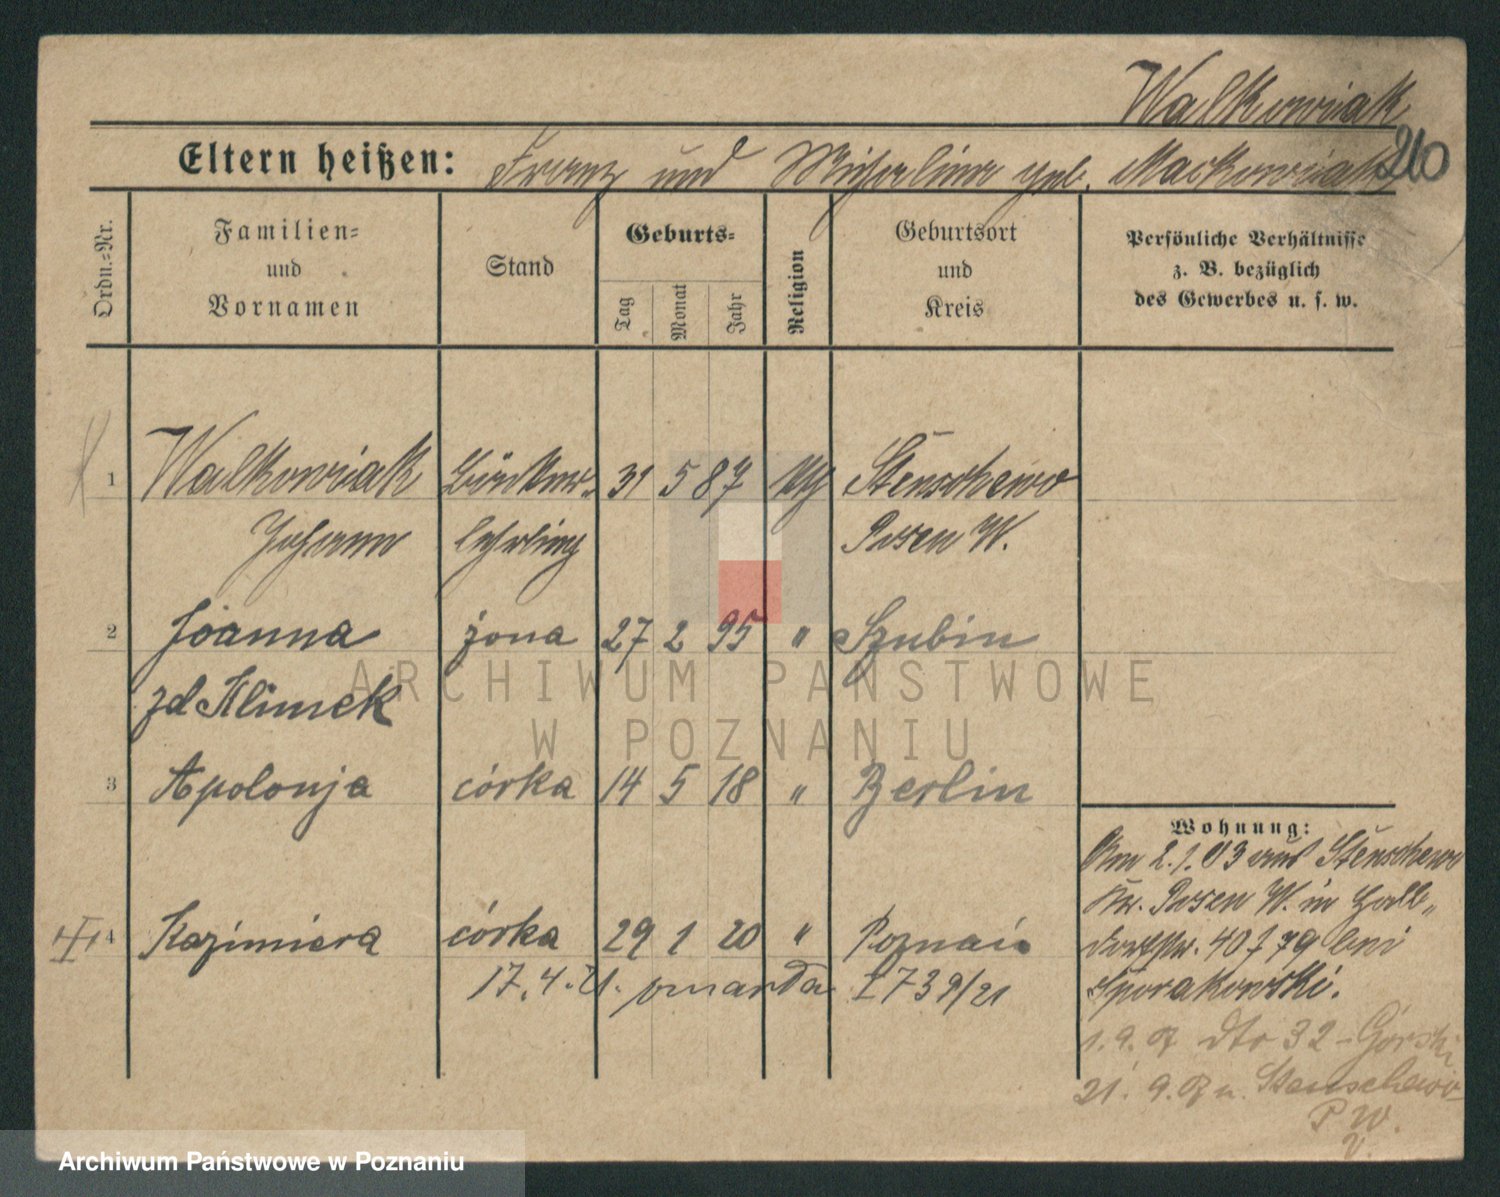 Walkowiak
210
Eltern heißen: Franz und Michalina geb. Mackowiak
Ordn.-Nr.
Familien-
und
Vornamen
Stand
Geburts-
Tag
Monat
Jahr
Religion
Geburtsort
und
Kreis
Persönliche Verhältnisse
z. B. bezüglich
des Gewerbes u. s. w.
1 Walkowiak 31 5 87 Stenschewo
Johann lehrling Posen W.
2 Joanna żona 27 2 95 " Szubin
zd Klimek
3 Apolonja córka 14 5 18 " Berlin
4 Kazimiera córka 29 1 20 " Poznań
17.4.21. zmarła I 739/21
Wohnung:
Am 2.1.03 aus Stenschewo
Kr. Posen W. in Halb-
dorfstr. 40 f 79 bei
Sporakowski.
1.9. dto 32 - Górski
21. 9. n. Stenschewo
P W.
ARCHIWUM PAŃSTWOWE
W POZNANIU
Archiwum Państwowe w Poznaniu